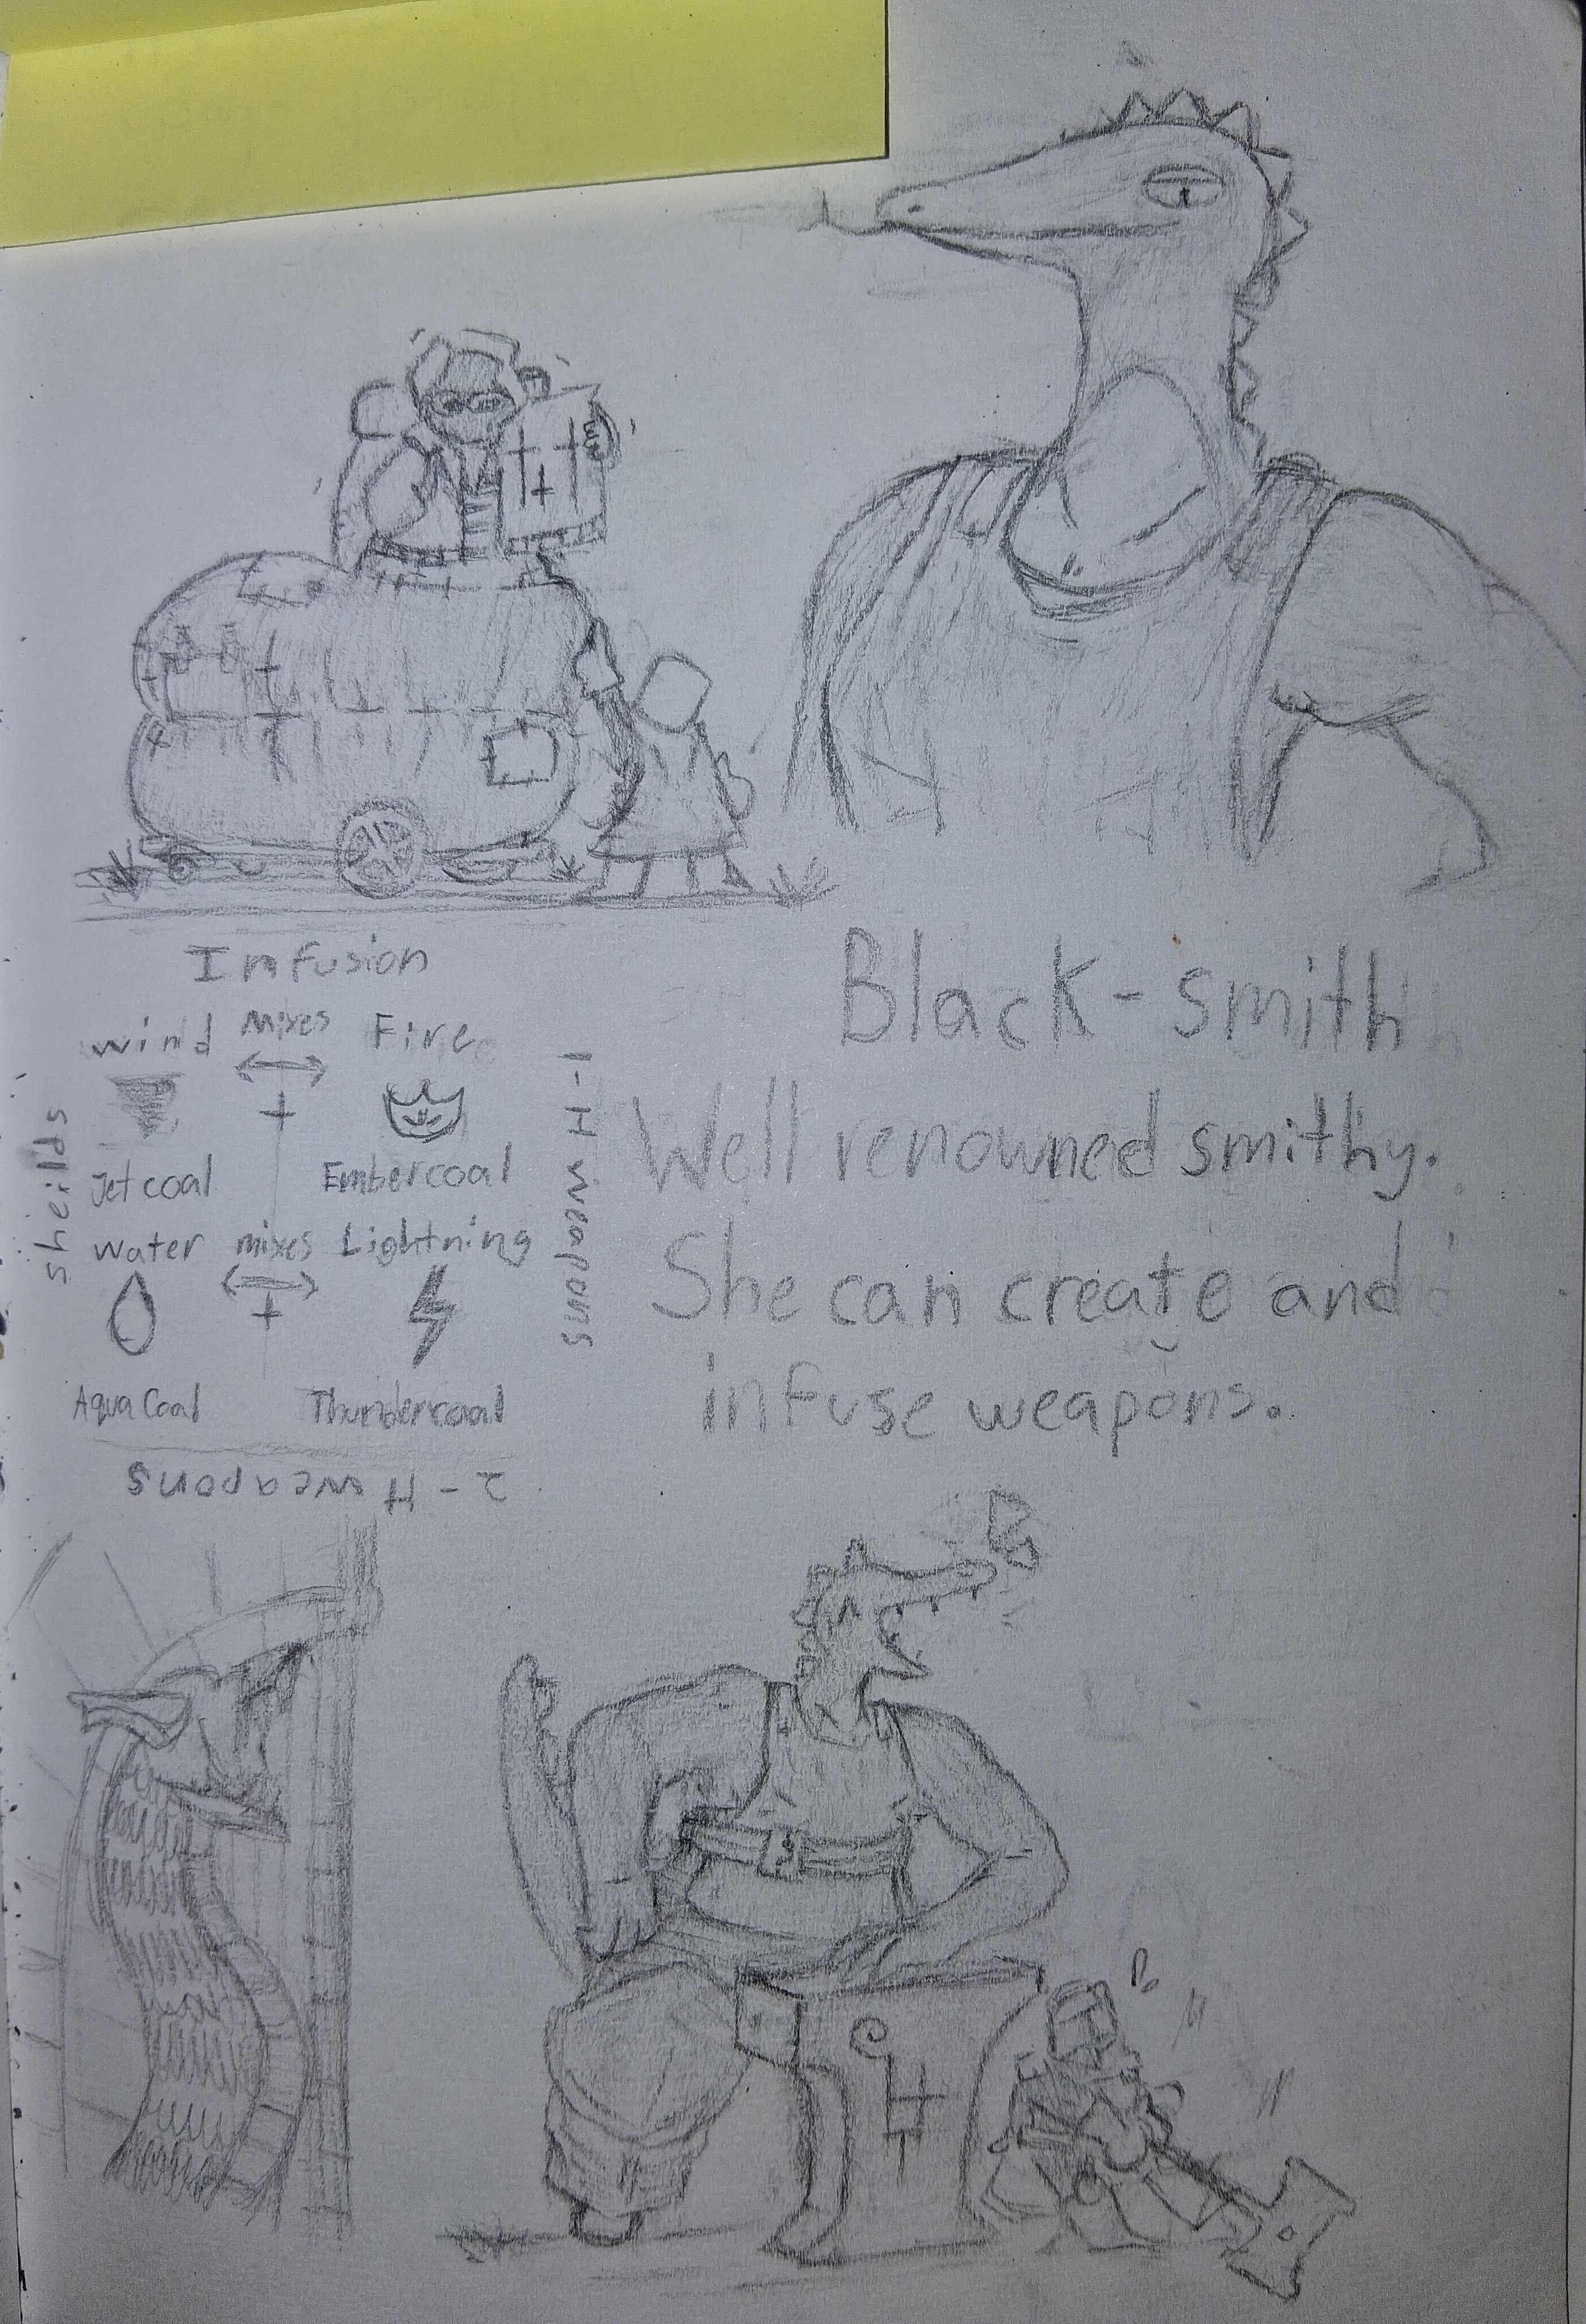 Infusion
Wind mixes Fire
+
Jet coal Embercoal
Water mixes Lightning
+
Aqua Coal Thundercoal
sheilds
1-H weapons
2-H weapons
Black-smith
Well renowned smithy.
She can create and
infuse weapons.